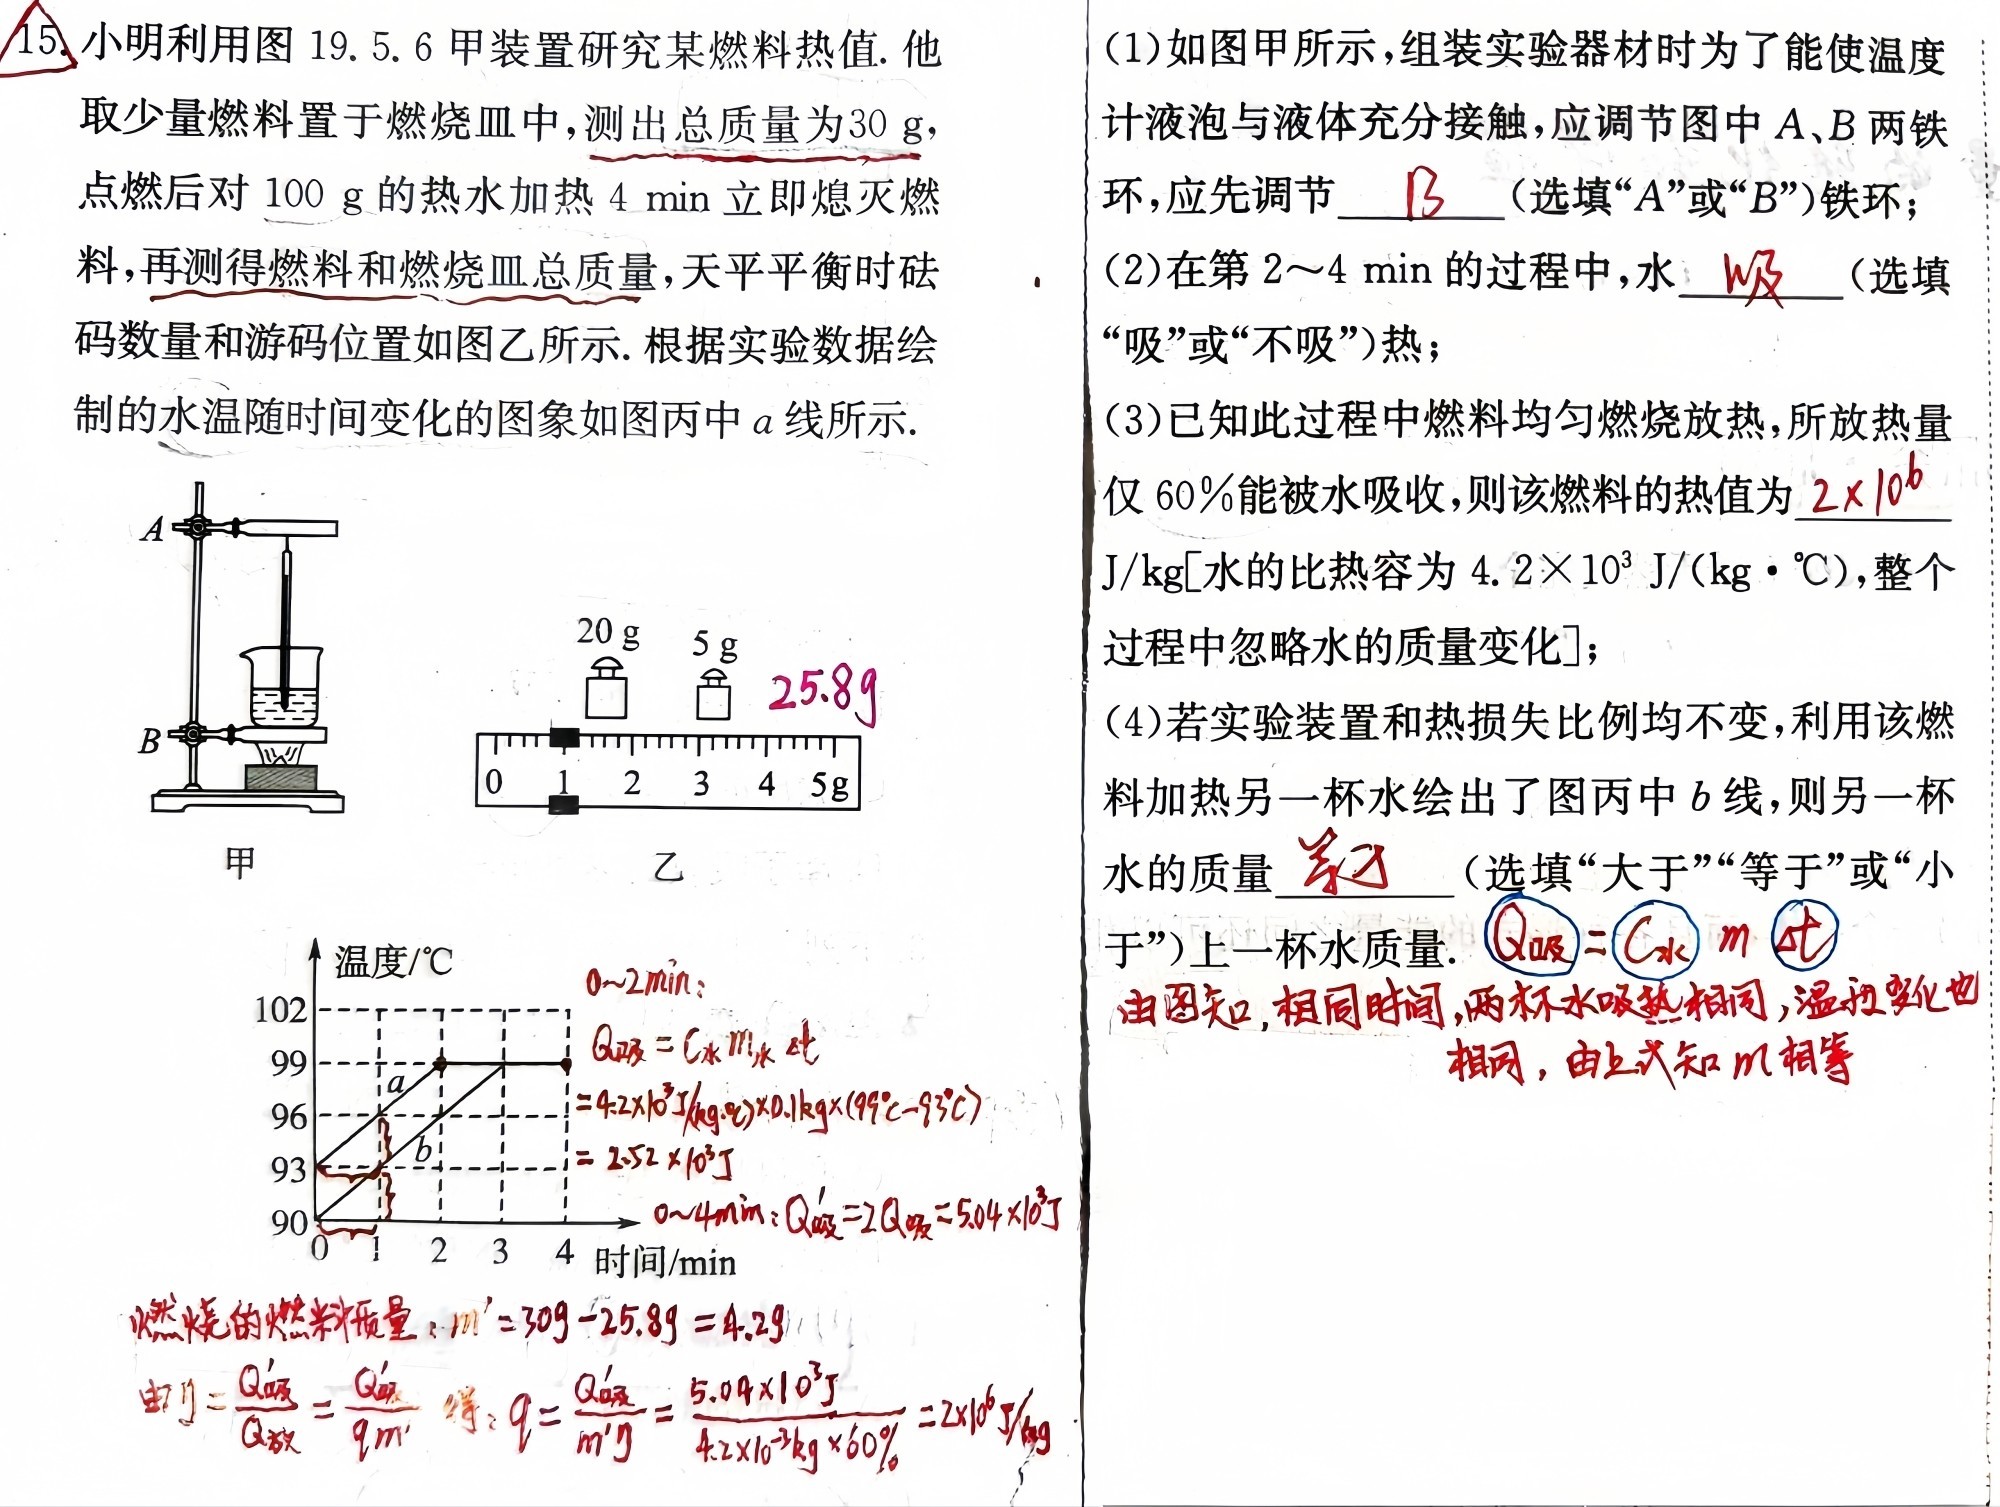 15. 小明利用图 19.5.6 甲装置研究某燃料热值. 他
取少量燃料置于燃烧皿中,测出总质量为30 g,
点燃后对 100 g 的热水加热 4 min 立即熄灭燃
料,再测得燃料和燃烧皿总质量,天平平衡时砝
码数量和游码位置如图乙所示. 根据实验数据绘
制的水温随时间变化的图象如图丙中 a 线所示.
A
B
甲
20 g 5 g
25.8g
0 1 2 3 4 5g
乙
温度/℃
102
99
96
93
90
a
b
0 1 2 3 4 时间/min
0~2min:
Q吸 = C水 m水 Δt
= 4.2×10³J/(kg·℃)×0.1kg×(99℃-93℃)
= 2.52×10³J
0~4min: Q吸' = 2Q吸 = 5.04×10³J
燃烧的燃料质量: m' = 30g - 25.8g = 4.2g
由η = Q吸'/Q放 = Q吸'/qm' 得: q = Q吸'/m'η = 5.04×10³J/4.2×10⁻³kg×60% = 2×10⁶J/kg
(1)如图甲所示,组装实验器材时为了能使温度
计液泡与液体充分接触,应调节图中 A、B 两铁
环,应先调节 B (选填“A”或“B”)铁环;
(2)在第 2~4 min 的过程中,水 吸 (选填
“吸”或“不吸”)热;
(3)已知此过程中燃料均匀燃烧放热,所放热量
仅 60%能被水吸收,则该燃料的热值为 2×10⁶
J/kg[水的比热容为 4.2×10³ J/(kg·℃),整个
过程中忽略水的质量变化];
(4)若实验装置和热损失比例均不变,利用该燃
料加热另一杯水绘出了图丙中 b 线,则另一杯
水的质量 等于 (选填“大于”“等于”或“小
于”)上一杯水质量. Q吸 = C水 m Δt
由图知,相同时间,两杯水吸热相同,温担变化也
相同,由上式知 m 相等